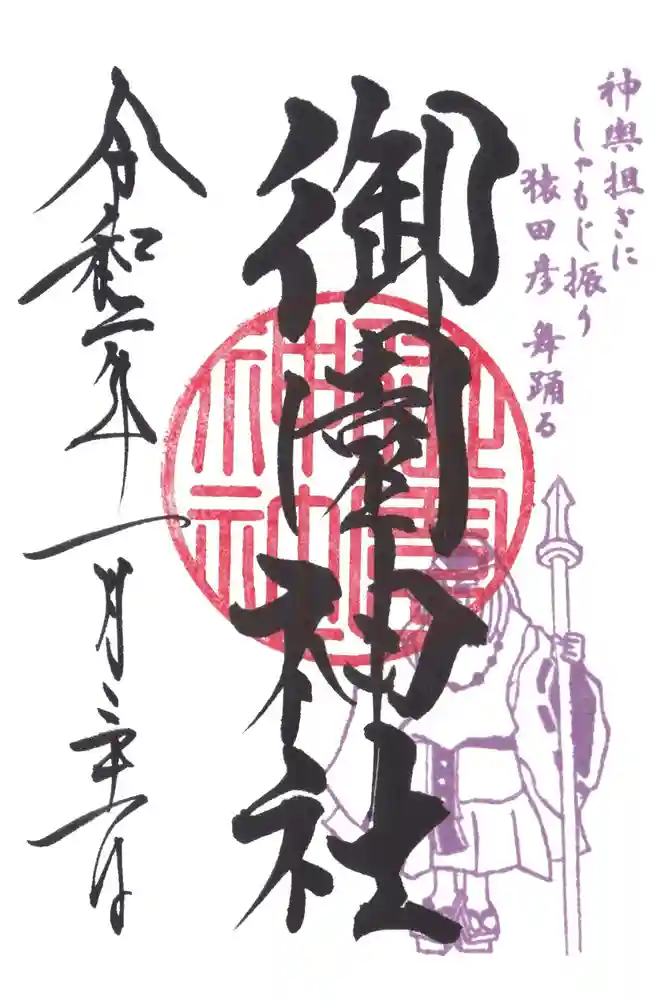 神輿担ぎに
しゃもじ振り
猿田彦 舞踊る
御園神社
令和二年一月三十一日